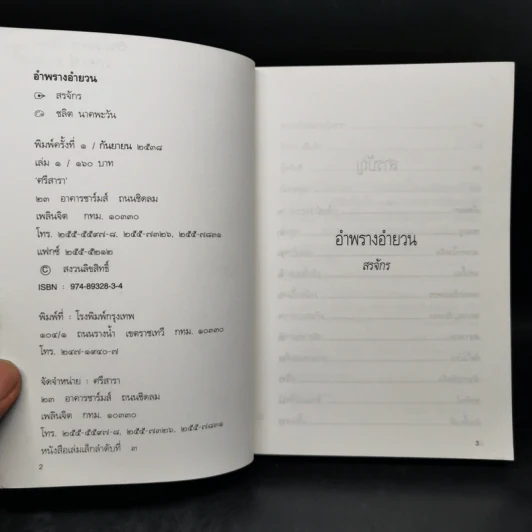 อำพรางอำยวน
สรจักร
ชลิต นาคพะวัน
พิมพ์ครั้งที่ ๑ / กันยายน ๒๕๓๘
เล่ม ๑ / ๑๖๐ บาท
'ศรีสารา'
๒๓ อาคารชาร์มส์ ถนนชิดลม
เพลินจิต กทม. ๑๐๓๓๐
โทร. ๒๕๕-๕๕๙๗-๘, ๒๕๕-๗๓๒๖, ๒๕๕-๗๘๓๑
แฟกซ์ ๒๕๕-๕๒๑๒
© สงวนลิขสิทธิ์
ISBN : 974-89328-3-4
พิมพ์ที่ : โรงพิมพ์กรุงเทพ
๑๐๔/๑ ถนนรางน้ำ เขตราชเทวี กทม. ๑๐๓๓๐
โทร. ๒๔๗-๑๙๔๐-๗
จัดจำหน่าย : ศรีสารา
๒๓ อาคารชาร์มส์ ถนนชิดลม
เพลินจิต กทม. ๑๐๓๓๐
โทร. ๒๕๕-๕๕๙๗-๘, ๒๕๕-๗๓๒๖, ๒๕๕-๗๘๓๑
หนังสือเล่มเล็กลำดับที่ ๓
2
อำพรางอำยวน
สรจักร
3